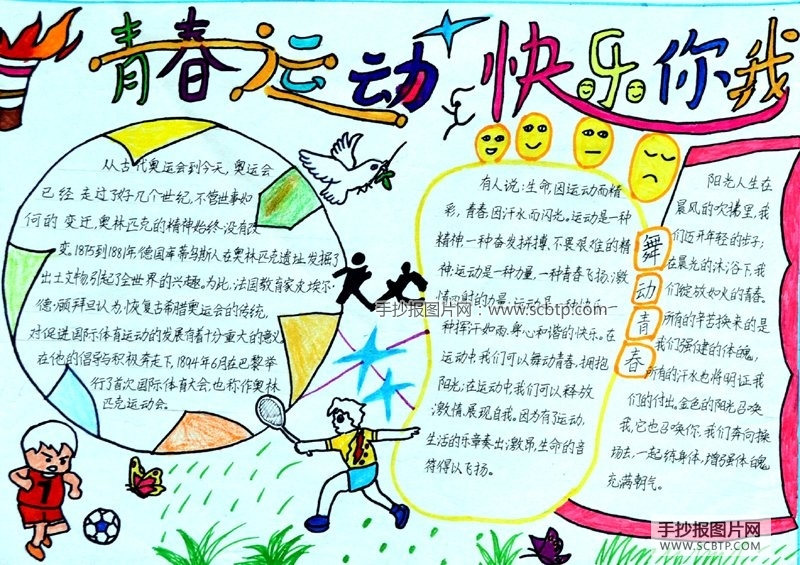 青春运动 快乐你我
从古代奥运会到今天,奥运会
已经走过了好几个世纪,不管世事如
何的变迁,奥林匹克的精神始终没有改
变。1875到1881年德国库蒂马斯人在奥林匹克遗址发掘了
出土文物,引起了全世界的兴趣。为此,法国教育家皮埃尔·
德·顾拜旦认为,恢复古希腊奥运会的传统,
对促进国际体育运动的发展有着十分重大的意义
在他的倡导与积极奔走下,1894年6月在巴黎举
行了首次国际体育大会,也称作奥林
匹克运动会。
有人说:生命因运动而精
彩,青春因汗水而闪光。运动是一种
精神,一种奋发拼搏、不畏艰难的精
神;运动是一种力量,一种青春飞扬、激
情四射的力量;运动是一种快乐,一
种挥汗如雨、身心和谐的快乐。在
运动中我们可以舞动青春,拥抱
阳光;在运动中我们可以释放
激情,展现自我。因为有了运动,
生活的乐章奏出激昂,生命的音
符得以飞扬。
舞动青春
阳光人生在
晨风的吹拂里,我
们迈开年轻的步子;
在晨光的沐浴下,我
们绽放如火的青春。
所有的辛苦换来的是
我们强健的体魄;
所有的汗水也将明证我
们的付出。金色的阳光召唤
我,它也召唤你。我们奔向操
场去,一起练身体,增强体魄
充满朝气。
手抄报图片网:www.scbtp.com
手抄报图片网
WWW.SCBTP.COM
7